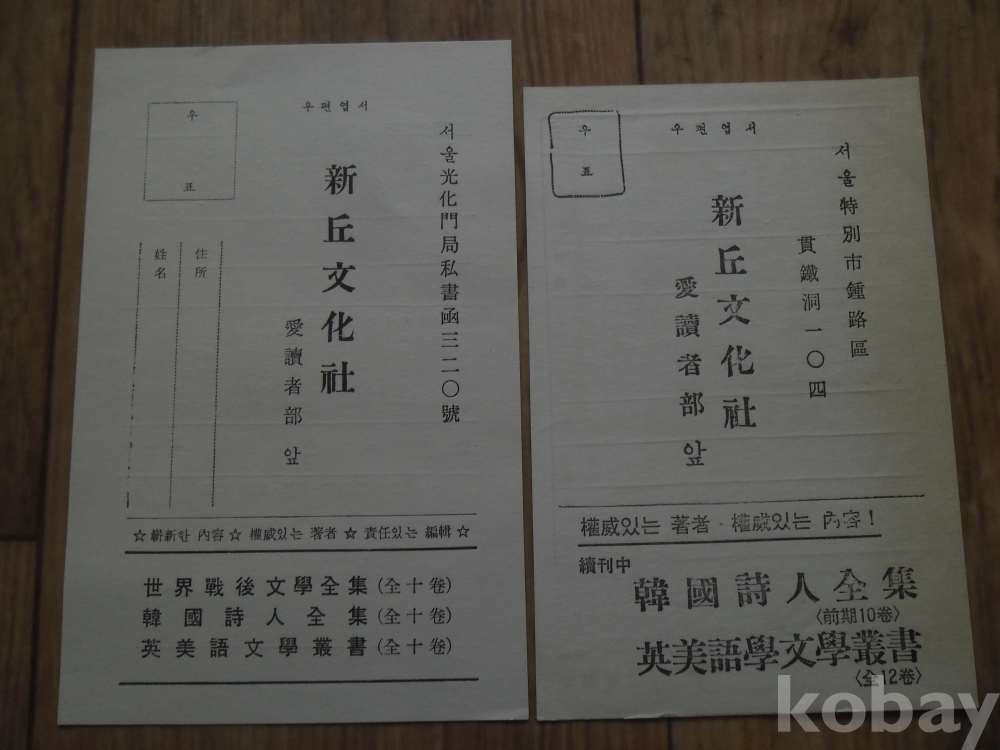 우편엽서
우
표
서울光化門局私書函三二〇號
新丘文化社
愛讀者部 앞
住所
姓名
☆ 嶄新한 內容 ☆ 權威있는 著者 ★ 責任있는 編輯 ☆
世界戰後文學全集 (全十卷)
韓國詩人全集 (全十卷)
英美語文學叢書 (全十卷)
우편엽서
우
표
서울特別市鍾路區
貫鐵洞一〇四
新丘文化社
愛讀者部 앞
權威있는 著者 · 權威있는 內容!
續刊中
韓國詩人全集
〈前期10卷〉
英美語學文學叢書
〈全12卷〉
kobay